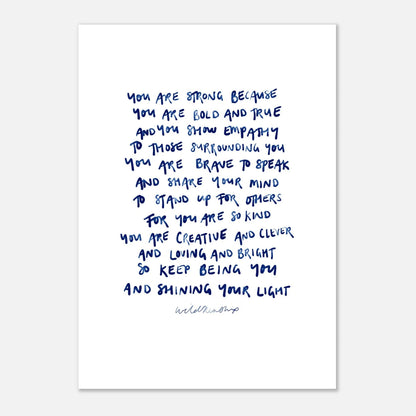 YOU ARE STRONG BECAUSE
YOU ARE BOLD AND TRUE
AND YOU SHOW EMPATHY
TO THOSE SURROUNDING YOU
YOU ARE BRAVE TO SPEAK
AND SHARE YOUR MIND
TO STAND UP FOR OTHERS
FOR YOU ARE SO KIND
YOU ARE CREATIVE AND CLEVER
AND LOVING AND BRIGHT
SO KEEP BEING YOU
AND SHINING YOUR LIGHT